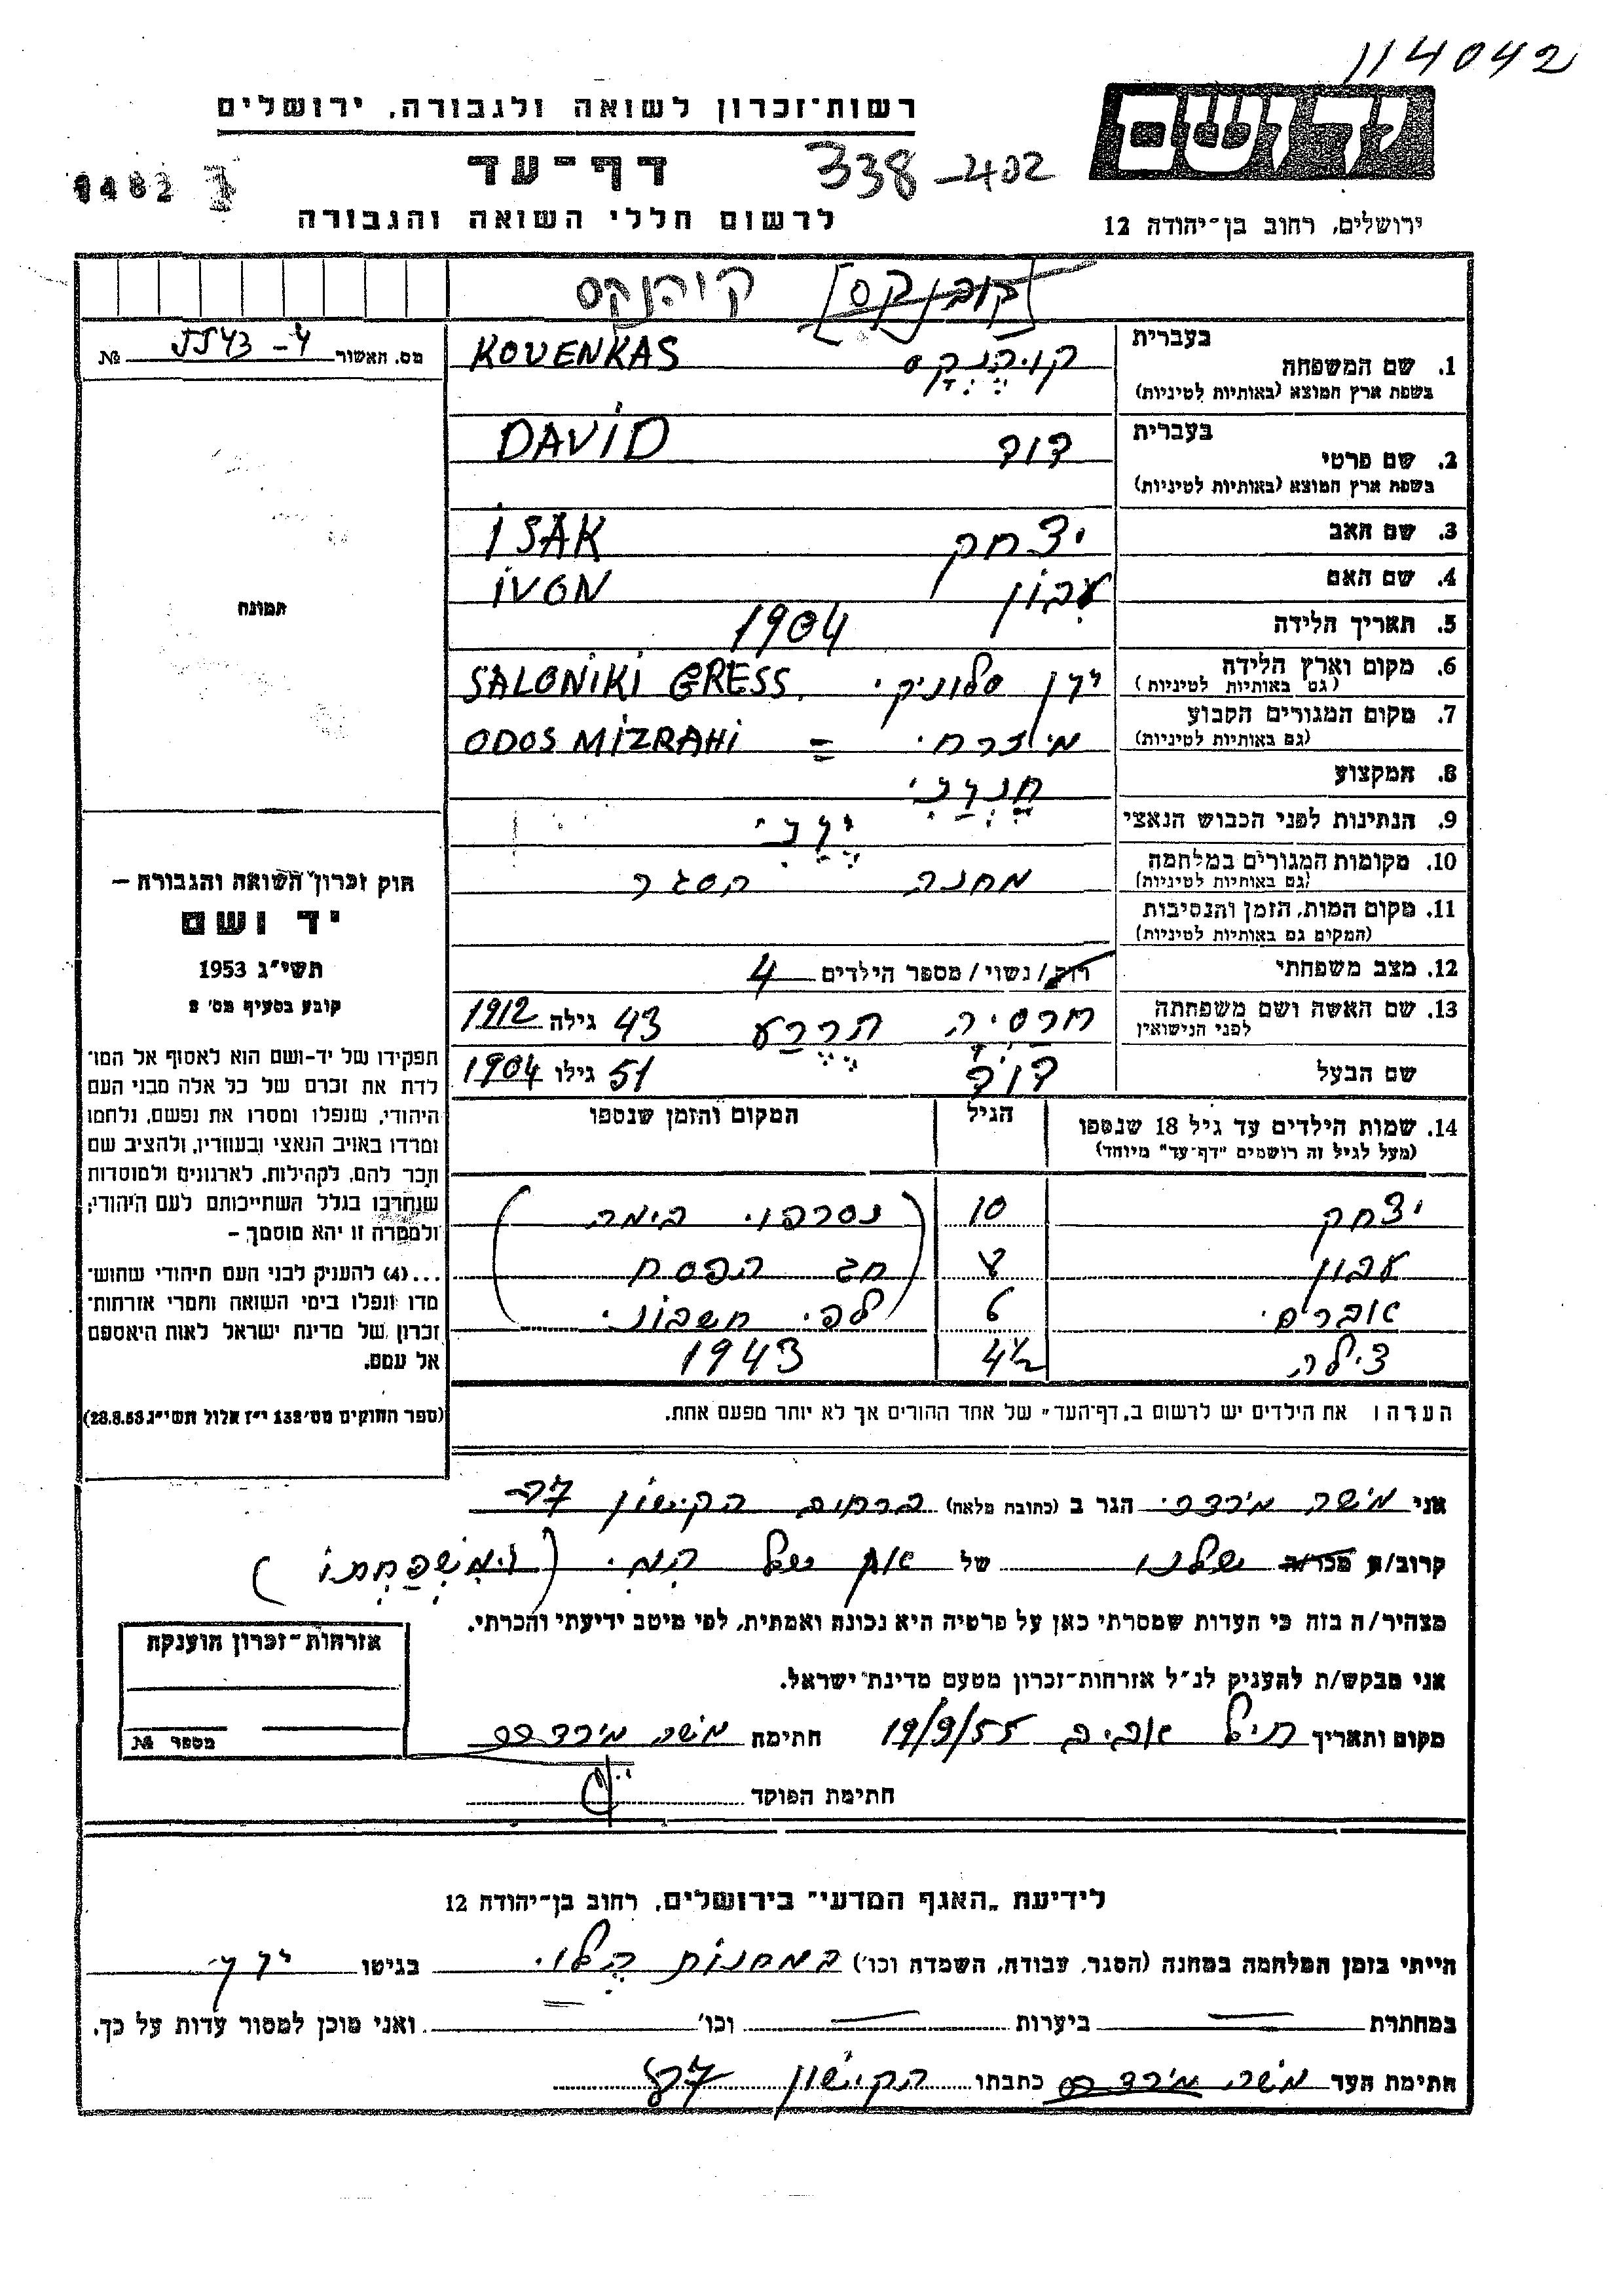 114042
רשות-זכרון לשואה ולגבורה, ירושלים
יד ושם
דף-עד
338-402
לרשום חללי השואה והגבורה
ירושלים, רחוב בן-יהודה 12
קוהנקס
מס. האשור № 5543-4
בעברית
1. שם המשפחה
בשפת ארץ המוצא (באותיות לטיניות)
KOUENKAS
בעברית
2. שם פרטי דוד DAViD
בשפת ארץ המוצא (באותיות לטיניות)
3. שם האב יצחק iSAK
4. שם האם iVON
5. תאריך הלידה 1904
6. מקום וארץ הלידה יון סלוניקי SALONiKi GRESS
(גם באותיות לטיניות)
7. מקום המגורים הקבוע מיזרחי = ODOS MiZRAHi
(גם באותיות לטיניות)
8. המקצוע
9. הנתינות לפני הכבוש הנאצי
10. מקומות המגורים במלחמה מחנה הסגר
(גם באותיות לטיניות)
11. מקום המות, הזמן והנסיבות
(המקום גם באותיות לטיניות)
12. מצב משפחתי רווק/נשוי/מספר הילדים 4
13. שם האשה ושם משפחתה 43 גילה 1912
לפני הנישואין
שם הבעל דויד 51 גילו 1904
14. שמות הילדים עד גיל 18 שנספו הגיל המקום והזמן שנספו
(מעל לגיל זה רושמים "דף-עד" מיוחד)
יצחק 10 (נסרפו בימה)
8 חג הפסח
6 לפי חשבוני
צילה 4½ 1943
הערה: את הילדים יש לרשום ב"דף-העד" של אחד ההורים אך לא יותר מפעם אחת.
תמונה
חוק זכרון השואה והגבורה —
יד ושם
תשי"ג 1953
קובע בסעיף מס' 2
תפקידו של יד-ושם הוא לאסוף אל המו־
לדת את זכרם של כל אלה מבני העם
היהודי, שנפלו ומסרו את נפשם, נלחמו
ומרדו באויב הנאצי ובעוזריו, ולהציב שם
וזכר להם, לקהילות, לארגונים ולמוסדות
שנחרבו בגלל השתייכותם לעם היהודי;
ולמטרה זו יהא מוסמך —
...(4) להעניק לבני העם היהודי שהוש־
מדו ונפלו בימי השואה והמרי אזרחות־
זכרון של מדינת ישראל לאות היאספם
אל עמם.
(ספר החוקים מס' 132 י"ז אלול תשי"ג 28.8.53)
אני משה הגר ב (כתובת מלאה) ברחוב הקישון
קרוב/ה מכר/ה שלנו של אח של (ומשפחתו)
מצהיר/ה בזה כי העדות שמסרתי כאן על פרטיה היא נכונה ואמתית, לפי מיטב ידיעתי והכרתי.
אני מבקש/ת להעניק לנ"ל אזרחות-זכרון מטעם מדינת ישראל.
מקום ותאריך תיל אביב 19/9/55 חתימה משה
חתימת הפוקד
אזרחות-זכרון הוענקה
מספר №
לידיעת "האגף המדעי" בירושלים, רחוב בן-יהודה 12
הייתי בזמן המלחמה במחנה (הסגר, עבודה, השמדה וכו') במחנות בגיטו
במחתרת ביערות וכו' ואני מוכן למסור עדות על כך.
חתימת העד משה כתבתו הקישון